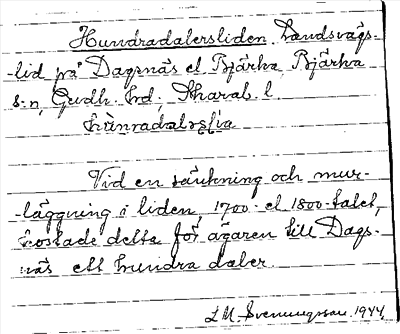 Hundradalersliden. Landsvägs-
-lid på Dagsnäs el Bjärka, Bjärka
s:n, Gudh. hd, Skarab. l.
Vid en sänkning och mur-
-läggning i liden, 1700- el 1800-talet,
kostade detta för ägaren till Dags-
näs ett hundra daler.
L M Svenungsson 1944